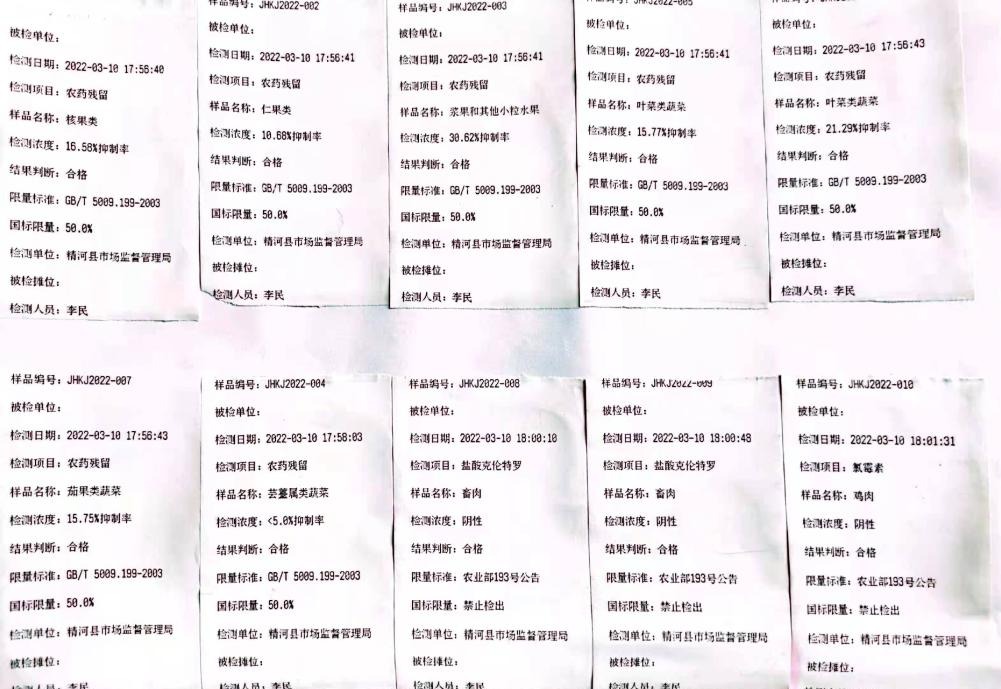 被检单位:
检测日期: 2022-03-10 17:56:40
检测项目: 农药残留
样品名称: 核果类
检测浓度: 16.58%抑制率
结果判断: 合格
限量标准: GB/T 5009.199-2003
国标限量: 50.0%
检测单位: 精河县市场监督管理局
被检摊位:
检测人员: 李民
样品编号: JHKJ2022-002
被检单位:
检测日期: 2022-03-10 17:56:41
检测项目: 农药残留
样品名称: 仁果类
检测浓度: 10.68%抑制率
结果判断: 合格
限量标准: GB/T 5009.199-2003
国标限量: 50.0%
检测单位: 精河县市场监督管理局
被检摊位:
检测人员: 李民
样品编号: JHKJ2022-003
被检单位:
检测日期: 2022-03-10 17:56:41
检测项目: 农药残留
样品名称: 浆果和其他小粒水果
检测浓度: 30.62%抑制率
结果判断: 合格
限量标准: GB/T 5009.199-2003
国标限量: 50.0%
检测单位: 精河县市场监督管理局
被检摊位:
检测人员: 李民
样品编号: JHKJ2022-005
被检单位:
检测日期: 2022-03-10 17:56:41
检测项目: 农药残留
样品名称: 叶菜类蔬菜
检测浓度: 15.77%抑制率
结果判断: 合格
限量标准: GB/T 5009.199-2003
国标限量: 50.0%
检测单位: 精河县市场监督管理局
被检摊位:
检测人员: 李民
被检单位:
检测日期: 2022-03-10 17:56:43
检测项目: 农药残留
样品名称: 叶菜类蔬菜
检测浓度: 21.29%抑制率
结果判断: 合格
限量标准: GB/T 5009.199-2003
国标限量: 50.0%
检测单位: 精河县市场监督管理局
被检摊位:
检测人员: 李民
样品编号: JHKJ2022-007
被检单位:
检测日期: 2022-03-10 17:56:43
检测项目: 农药残留
样品名称: 茄果类蔬菜
检测浓度: 15.75%抑制率
结果判断: 合格
限量标准: GB/T 5009.199-2003
国标限量: 50.0%
检测单位: 精河县市场监督管理局
被检摊位:
检测人员: 李民
样品编号: JHKJ2022-004
被检单位:
检测日期: 2022-03-10 17:58:03
检测项目: 农药残留
样品名称: 芸薹属类蔬菜
检测浓度: <5.0%抑制率
结果判断: 合格
限量标准: GB/T 5009.199-2003
国标限量: 50.0%
检测单位: 精河县市场监督管理局
被检摊位:
检测人员: 李民
样品编号: JHKJ2022-008
被检单位:
检测日期: 2022-03-10 18:00:10
检测项目: 盐酸克伦特罗
样品名称: 畜肉
检测浓度: 阴性
结果判断: 合格
限量标准: 农业部193号公告
国标限量: 禁止检出
检测单位: 精河县市场监督管理局
被检摊位:
检测人员: 李民
样品编号: JHKJ2022-009
被检单位:
检测日期: 2022-03-10 18:00:48
检测项目: 盐酸克伦特罗
样品名称: 畜肉
检测浓度: 阴性
结果判断: 合格
限量标准: 农业部193号公告
国标限量: 禁止检出
检测单位: 精河县市场监督管理局
被检摊位:
检测人员: 李民
样品编号: JHKJ2022-010
被检单位:
检测日期: 2022-03-10 18:01:31
检测项目: 氯霉素
样品名称: 鸡肉
检测浓度: 阴性
结果判断: 合格
限量标准: 农业部193号公告
国标限量: 禁止检出
检测单位: 精河县市场监督管理局
被检摊位: